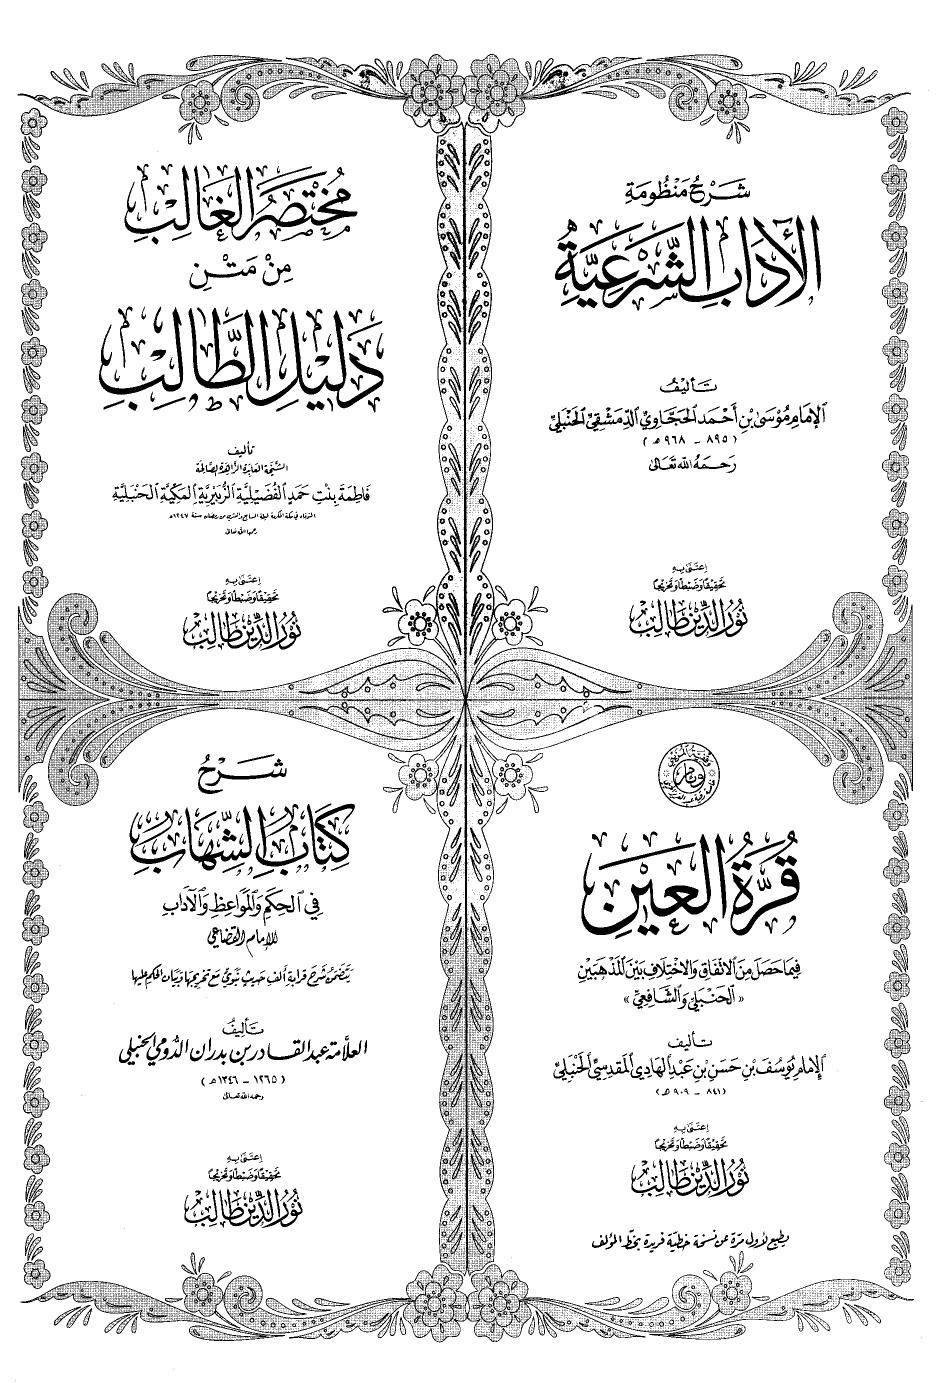 شَرْحُ مَنْظُومَةِ
الآدَابِ الشَّرْعِيَّةِ
تَأليفُ
الإمَامِ مُوسَىٰ بْنِ أَحْمَدَ الحَجَّاوِيِّ الدِّمَشْقِيِّ الحَنْبَلِيِّ
(٨٩٥ - ٩٦٨ هـ)
رَحِمَهُ اللهُ تَعَالىٰ
اعتَنَىٰ بِهِ
تَحْقِيقًا وَضَبْطًا وَتَخْرِيجًا
نُورُ الدِّين طَالِب
مُخْتَصَرُ الغَالِبِ
مِنْ مَتْنِ
دَلِيلِ الطَّالِبِ
تأليف
الشَّيْخَةِ العَابِدَةِ الزَّاهِدَةِ الصَّالِحَةِ
فَاطِمَةَ بِنْتِ حَمَدٍ الفُضَيْلِيَّةِ الزُّبَيْرِيَّةِ المَكِّيَّةِ الحَنْبَلِيَّةِ
المتوفاة في مكة المكرمة ليلة السابع والعشرين من رمضان سنة ١٢٤٧هـ
رحمها الله تعالى
اعتَنَىٰ بِهِ
تَحْقِيقًا وَضَبْطًا وَتَخْرِيجًا
نُورُ الدِّين طَالِب
قُرَّةُ العَيْنِ
فِيمَا حَصَلَ مِنَ الِاتِّفَاقِ وَالِاخْتِلَافِ بَيْنَ المَذْهَبَيْنِ
«الحَنْبَلِيِّ وَالشَّافِعِيِّ»
تأليف
الإمَامِ يُوسُفَ بْنِ حَسَنِ بْنِ عَبْدِ الهَادِي المَقْدِسِيِّ الحَنْبَلِيِّ
(٨٤١ - ٩٠٩ هـ)
اعتَنَىٰ بِهِ
تَحْقِيقًا وَضَبْطًا وَتَخْرِيجًا
نُورُ الدِّين طَالِب
يطبع لأول مرة عن نسخة خطية فريدة بخط المؤلف
شَرْحُ
كِتَابِ الشِّهَابِ
فِي الحِكَمِ وَالمَوَاعِظِ وَالآدَابِ
للإمام القضاعي
يتضمن شرح قرابة ألف حديث نبوي مع تخريجها وبيان الحكم عليها
تَأليفُ
العلّامة عبد القادر بن بدران الدُّومي الحنبلي
(١٢٦٥ - ١٣٤٦ هـ)
رحمه الله تعالى
اعتَنَىٰ بِهِ
تَحْقِيقًا وَضَبْطًا وَتَخْرِيجًا
نُورُ الدِّين طَالِب